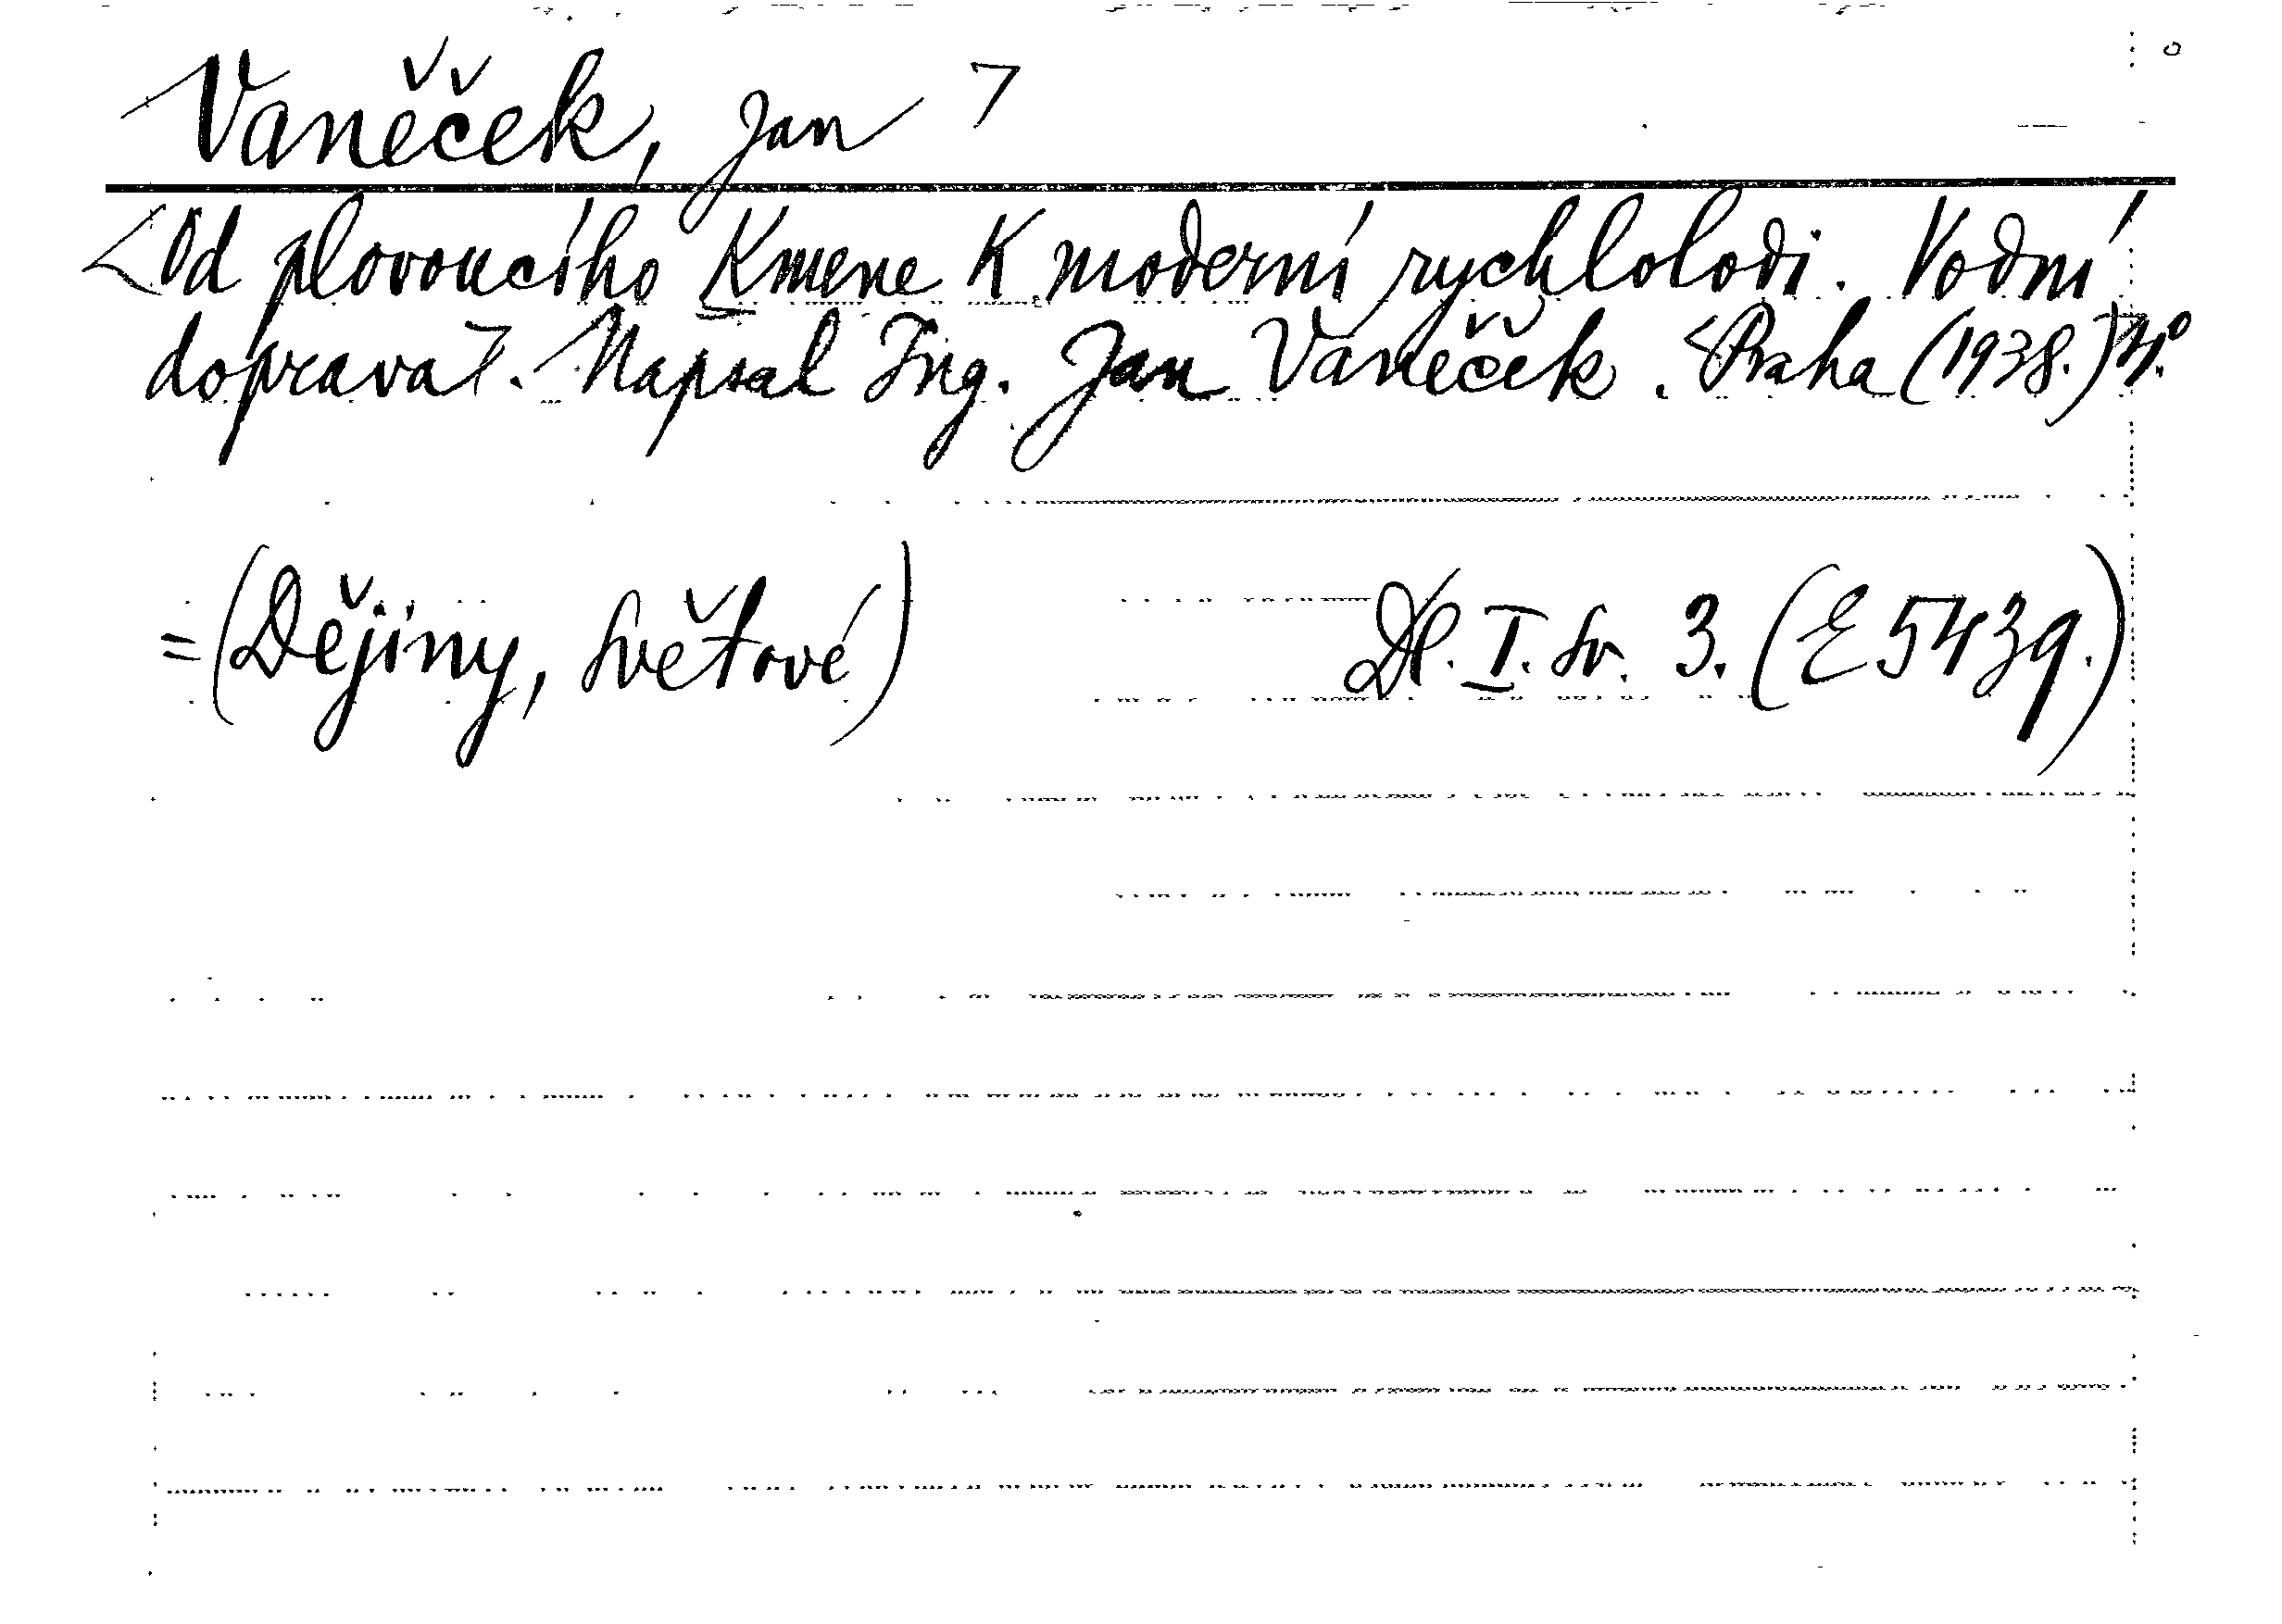 Vaněček, Jan
Od plovoucího kmene k moderní rychlolodi. Vodní
doprava. Napsal Ing. Jan Vaněček. Praha (1938.) 4°.
=(Dějiny, světové) Dl. I. sv. 3. (E 5439.)